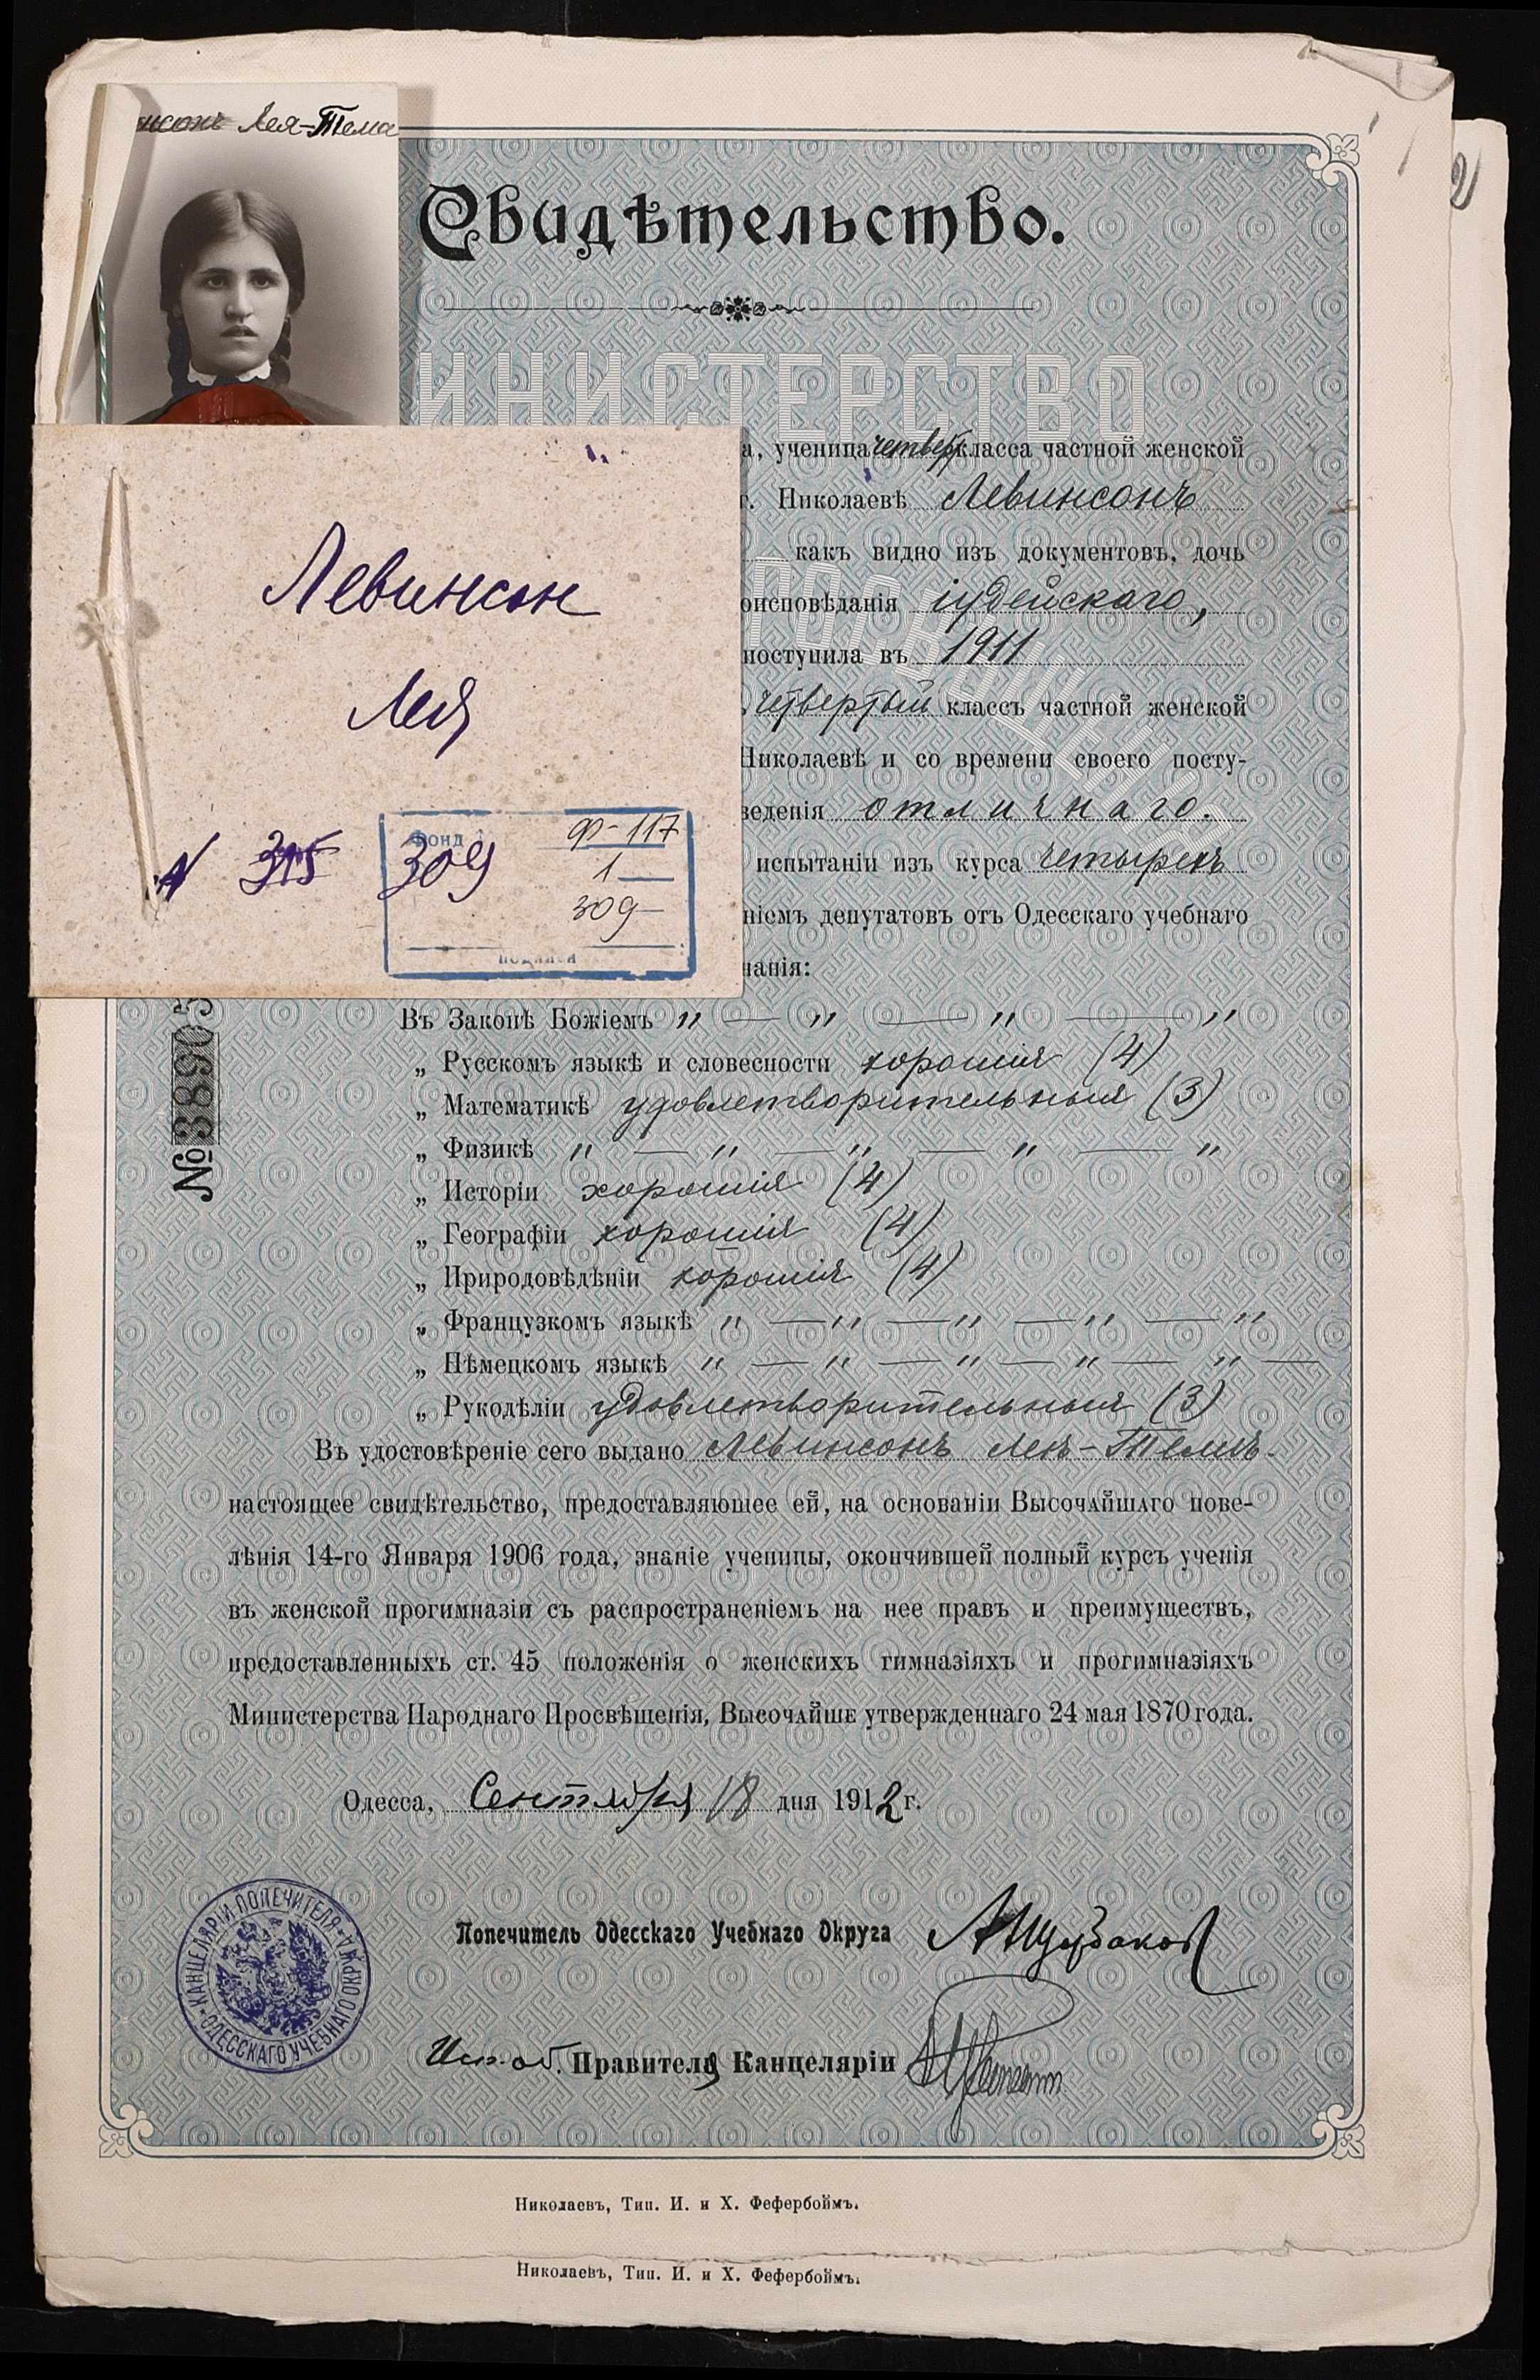 Лея-Тема
Свидѣтельство.
ИНИСТЕРСТВО
а, ученица четверт класса частной женской
г. Николаевѣ Левинсонъ
какъ видно изъ документовъ, дочь
оисповѣданія іудейскаго,
поступила въ 1911
четвертый классъ частной женской
Николаевѣ и со времени своего посту-
веденія отличнаго.
испытаніи изъ курса четырехъ
ніемъ депутатовъ отъ Одесскаго учебнаго
нанія:
Левинсон
Лея
N 315 309
Фонд Ф-117
1
309
подписи
№ 38905
Въ Законѣ Божіемъ " — " — " — "
„ Русскомъ языкѣ и словесности хорошія (4)
„ Математикѣ удовлетворительныя (3)
„ Физикѣ " — " — " — " — "
„ Исторіи хорошія (4)
„ Географіи хорошія (4)
„ Природовѣдѣніи хорошія (4)
„ Французкомъ языкѣ " — " — " — " — "
„ Нѣмецкомъ языкѣ " — " — " — " — " —
„ Рукодѣліи удовлетворительныя (3)
Въ удостовѣреніе сего выдано Левинсонъ Леѣ-Темѣ
настоящее свидѣтельство, предоставляющее ей, на основаніи Высочайшаго пове-
лѣнія 14-го Января 1906 года, знаніе ученицы, окончившей полный курсъ ученія
въ женской прогимназіи съ распространеніемъ на нее правъ и преимуществъ,
предоставленныхъ ст. 45 положенія о женскихъ гимназіяхъ и прогимназіяхъ
Министерства Народнаго Просвѣщенія, Высочайше утвержденнаго 24 мая 1870 года.
Одесса, Сентября 18 дня 1912 г.
Попечитель Одесскаго Учебнаго Округа
КАНЦЕЛЯРІИ ПОПЕЧИТЕЛЯ ОДЕССКАГО УЧЕБНАГО ОКРУГА
Исп. об. Правителя Канцеляріи
Николаевъ, Тип. И. и Х. Фефербоймъ.
Николаевъ, Тип. И. и Х. Фефербоймъ.